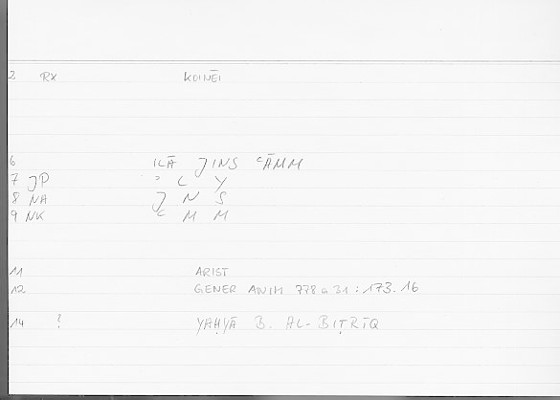 2 RX KOINĒI
6 ILĀ JINS ʿĀMM
7 JP ʾ L Y
8 NA J N S
9 NK ʿ M M
11 ARIST
12 GENER ANIM 778 a 31 : 173.16
14 ! YAḤYĀ B. AL-BIṬRĪQ